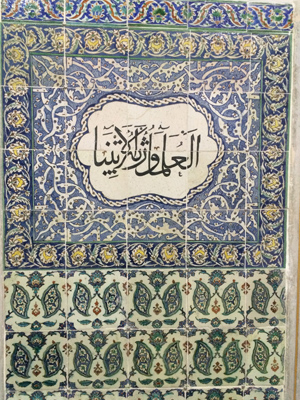 العلما ورثة الانبيا